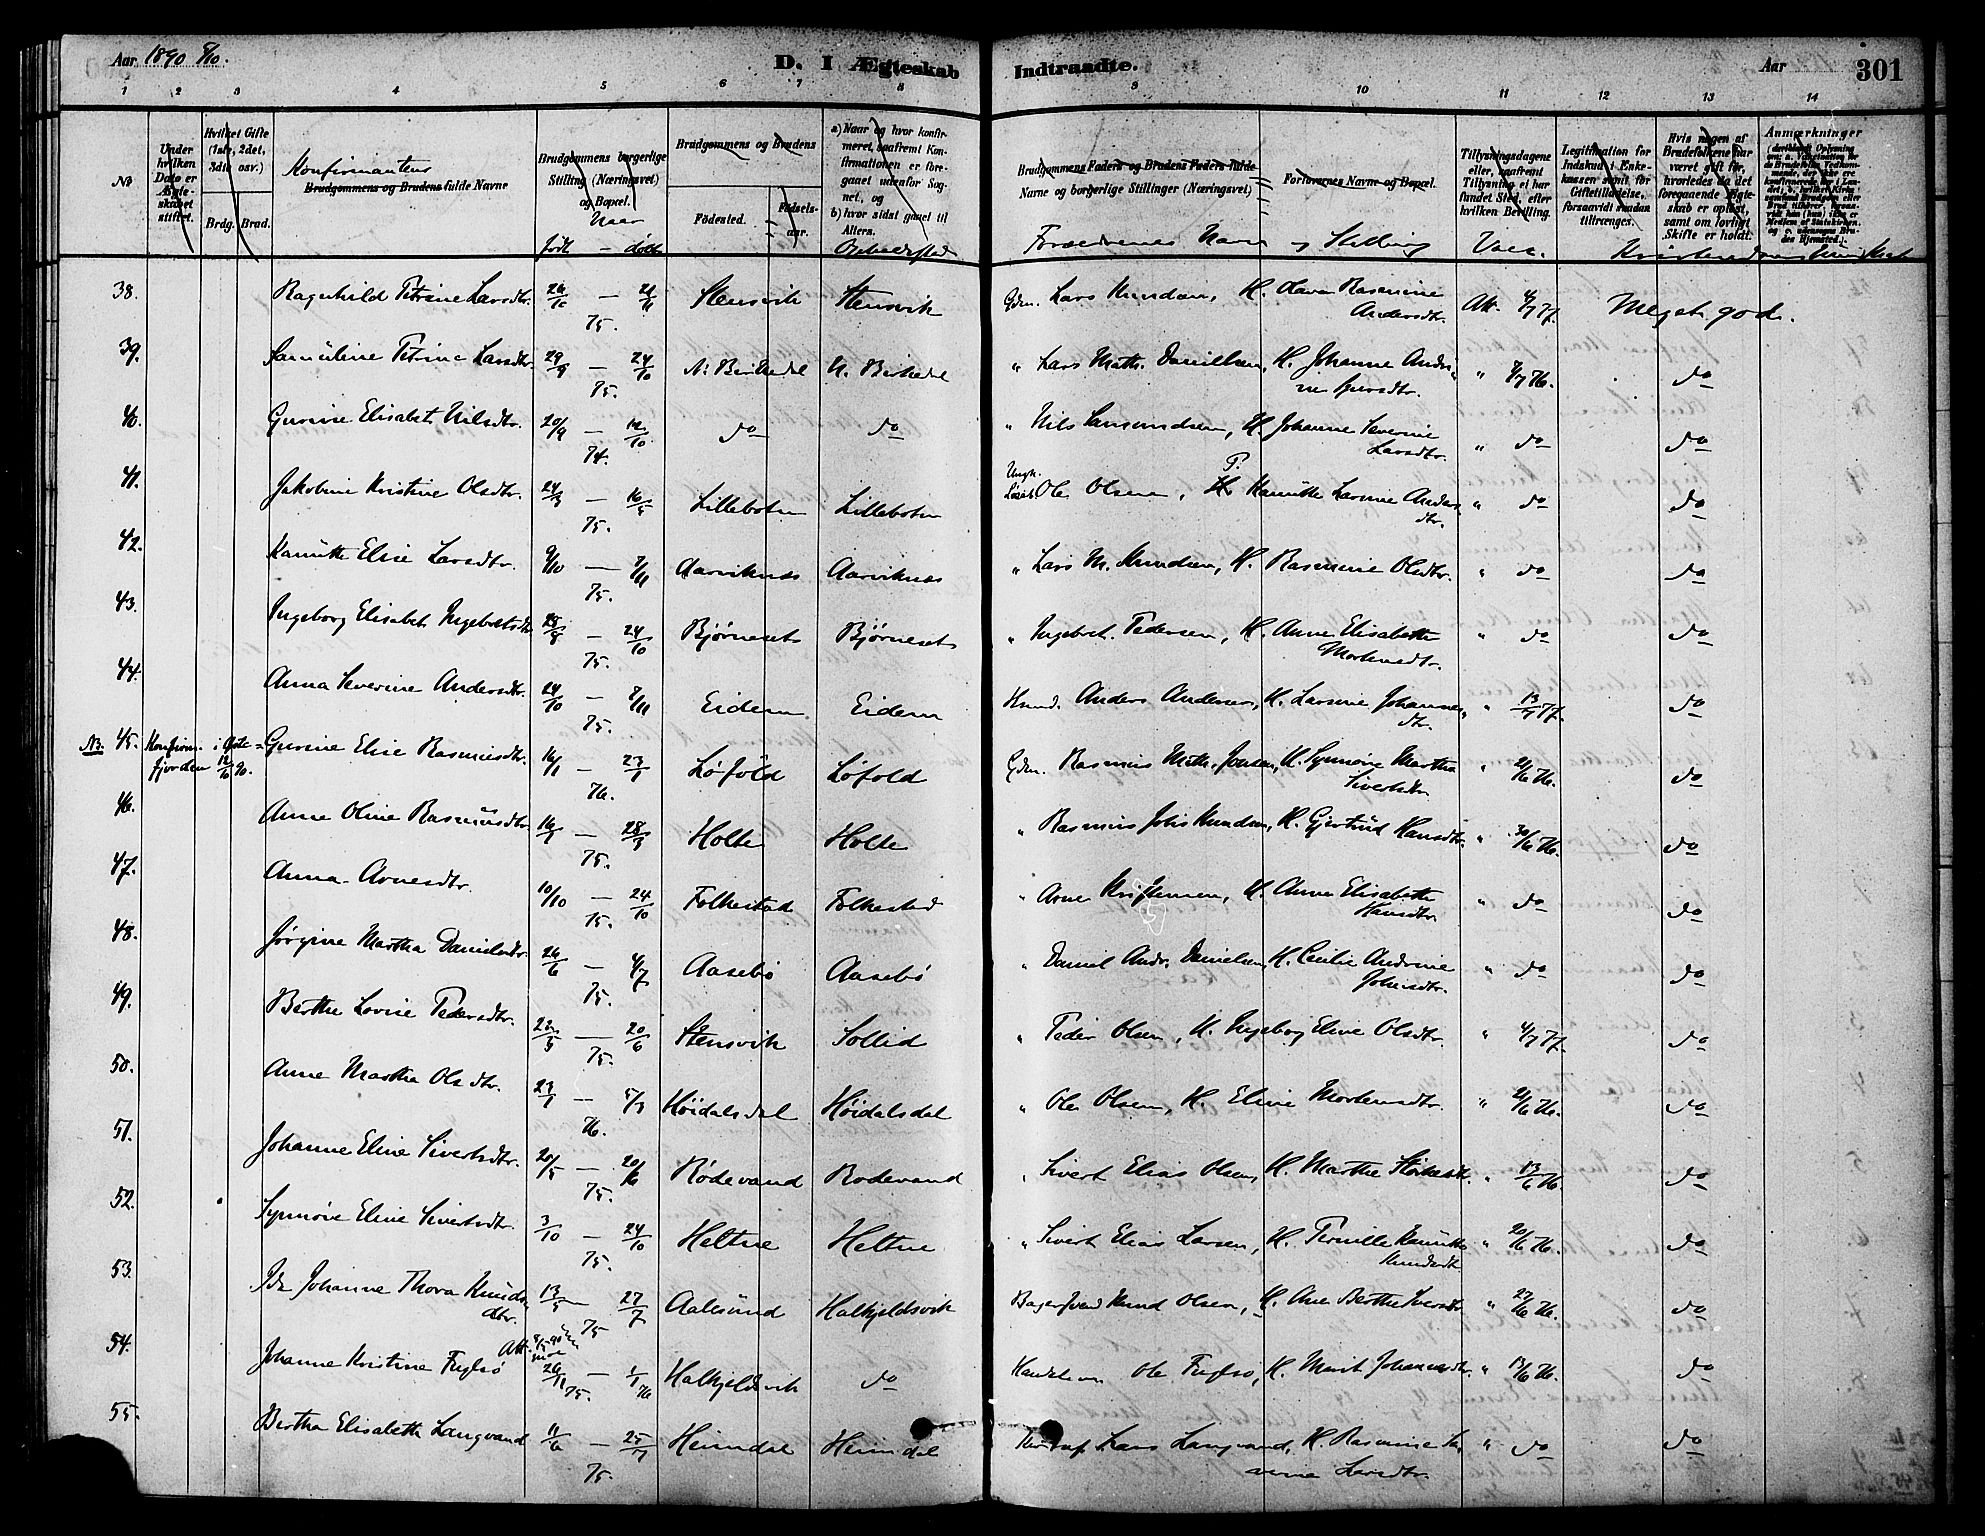 Aar 1890 5/10.
D. I Ægteskab Indtraadte.
Aar 301
1 2 3 4 5 6 7 8 9 10 11 12 13 14
No
Under hvilken Dato er Ægteskabet stiftet.
Hvilket Gifte (1ste, 2det, 3die osv.)
Brdg. Brud.
Konfirmantens
Brudgommens og Brudens fulde Navne
Brudgommens borgerlige Stilling (Næringsvei) og Bopæl.
Naar
født — døbt
Brudgommens og Brudens
Fødested. Fødselsaar.
a) Naar og hvor konfirmeret, saafremt Konfirmationen er foregaaet udenfor Sognet, og
b) hvor sidst gaaet til Alters.
Opholdssted
Brudgommens Faders og Brudens Faders fulde Navne og borgerlige Stillinger (Næringsvei)
Forlovernes Navne og Bopæl.
Forældrenes Navn og Stilling
Tillysningsdagene eller, saafremt Tillysning ei har fundet Sted, efter hvilken Bevilling.
Vacc.
Legitimation for Indskud i Enkekassen samt for Giftetilladelse, forsaavidt saadan tiltrænges.
Hvis nogen af Brudefolkene har været gift før, hvorledes da det foregaaende Ægteskab er opløst, samt om lovligt Skifte er holdt.
Anmærkninger
Kristendomskundskab
38. Ragnhild Petrine Larsdtr. 26/10 — 21/11 75. Stensvik Stensvik Gdm. Lars Knudsen, H. Olava Rasmine Andersdtr. Att. 4/7 77. Meget god.
39. Samuline Petrine Larsdtr. 29/9 — 24/10 75. N. Birkedal N. Birkedal " Lars Math. Danielsen, H. Johanne Andrine Iversdtr. " 7/7 76. do
40. Gurine Elisabet Nilsdtr. 20/9 — 12/10 74. do do " Nils Samundsen, H. Johanne Severine Larsdtr. " do do
41. Jakobine Kristine Olsdtr. 24/3 — 16/5 75. Lillebotn Lillebotn Ungk. Løsarb. Ole Olsen, P. Hanütte Lavine Andersdtr. " do do
42. Hanütte Eline Larsdtr. 9/10 — 7/11 75. Aarviknæs Aarviknæs " Lars M. Knudsen, H. Rasmine Olsdtr. " do do
43. Ingeborg Elisabet Ingebretsdtr. 28/8 — 24/10 75. Bjørneset Bjørneset " Ingebret Pedersen, H. Anne Elisabeth Mortensdtr. " do do
44. Anna Severine Andersdtr. 24/10 — 7/11 75. Eidem Eidem Husmd. Anders Andersen, H. Larsine Johannesdtr. " 13/7 77. do
NB. 45. Konfirm. i Østefjorden 12/10 90. Gurine Elise Rasmusdtr. 16/1 — 23/1 76. Løfold Løfold Gdm. Rasmus Math. Jonsen, H. Synnøve Martha Sivertsdtr. " 21/6 76. do
46. Anne Oline Rasmüsdtr. 16/7 — 28/3 75. Holte Holte " Rasmus Johs Knudsen, H. Gjertrud Hansdtr. " 30/6 76. do
47. Anna Arnesdtr. 10/10 — 24/10 75. Folkestad Folkestad " Arne Kristensen, H. Anne Elisabeth Hansdtr. " do do
48. Jørgine Martha Danielsdtr. 26/6 — 4/7 75. Aasebø Aasebø " Daniel Andr. Danielsen, H. Cecilie Andrine Johnsdtr. " do do
49. Berthe Lovise Pedersdtr. 22/5 — 20/6 75. Stensvik Sollid " Peder Olsen, H. Ingeborg Eline Olsdtr. " 4/7 77. do
50. Anne Martha Olsdtr. 23/1 — 5/3 76. Høidalsdal Høidalsdal " Ole Olsen, H. Eline Mortensdtr. " 21/6 76. do
51. Johanne Eline Sivertsdtr. 20/5 — 20/6 75. Rødevand Rødevand " Sivert Elias Olsen, H. Marthe " 13/6 76. do
52. Synnøve Eline Sivertsdtr. 3/10 — 24/10 75. Heltne Heltne " Sivert Elias Larsen, H. Pernille Hanütte Knudsdtr " 20/6 76. do
53. Ida Johanne Thora Knudsdtr. 13/5 — 27/7 75 Aalesund Halkjeldsvik Bagersvend Knud Olsen, H. Ane Berthe Iversdtr. " 27/6 76. do
54. Johanne Kristine Fuglsø Att. 26/11 75. — 1/1 76 Halkjeldsvik do Handelsm Ole Fuglsø, H. Marit Johannesdtr. " 13/6 76. do
55. Bertha Elisabeth Langvand 11/6 — 25/7 75. Heimdal Heimdal Lars Langvand, H. Rasmine Larsdtr. " do do